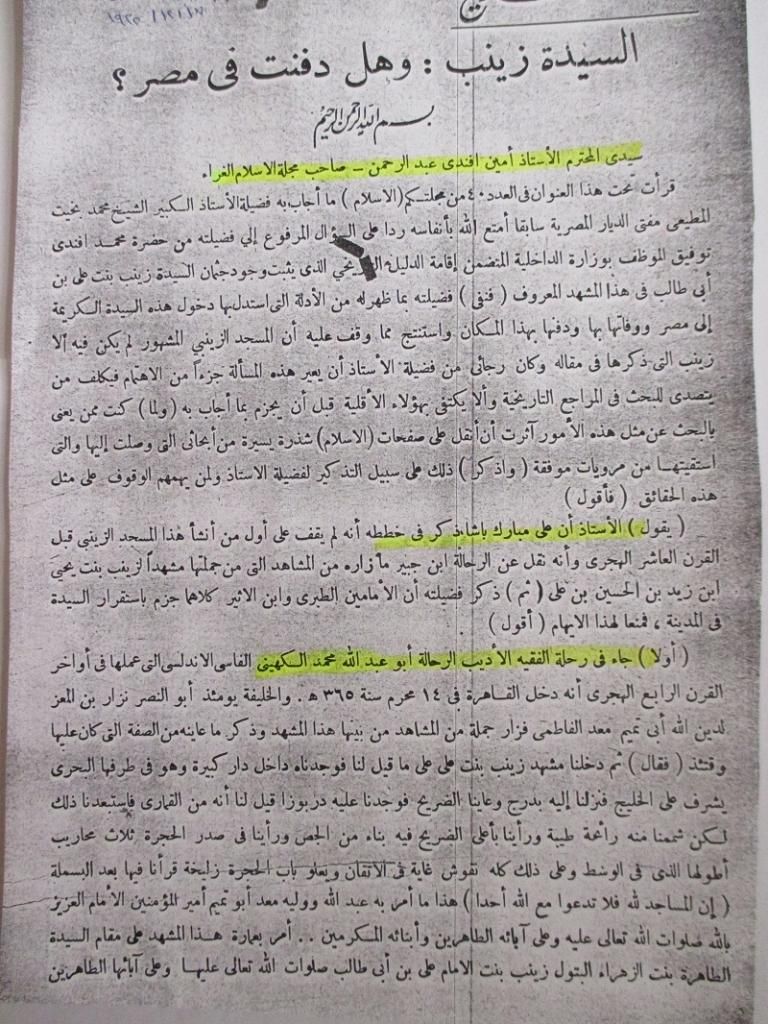 ١٩٣٥/١٢/١٨
السيدة زينب : وهل دفنت فى مصر ؟
بسم الله الرحمن الرحيم
سيدى المحترم الأستاذ أمين افندى عبد الرحمن – صاحب مجلة الاسلام الغراء
قرأت تحت هذا العنوان فى العدد ٤٠ من مجلتكم (الاسلام) ما أجاب به فضيلة الأستاذ الكبير الشيخ محمد بخيت
المطيعى مفتى الديار المصرية سابقا أمتع الله بأنفاسه ردا على السؤال المرفوع إلي فضيلته من حضرة محمد افندى
توفيق الموظف بوزارة الداخلية المتضمن إقامة الدليل التاريخي الذى يثبت وجود جثمان السيدة زينب بنت على بن
أبى طالب فى هذا المشهد المعروف ( فنفى ) فضيلته بما ظهر له من الأدلة التى استدل بها دخول هذه السيدة الكريمة
إلى مصر ووفاتها بها ودفنها بهذا المكان واستنتج مما وقف عليه أن المسجد الزينبي المشهور لم يكن فيه ألا
زينب التى ذكرها فى مقاله وكان رجائى من فضيلة الأستاذ أن يعير هذه المسألة جزءاً من الاهتمام فيكلف من
يتصدى للبحث فى المراجع التاريخية وألا يكتفى بهؤلاء الأقلية قبل أن يجزم بما أجاب به ( ولما ) كنت ممن يعنى
بالبحث عن مثل هذه الأمور آثرت أن أنقل على صفحات (الاسلام) شذرة يسيرة من أبحاثى التى وصلت إليها والتى
استقيتها من مرويات موفقة ( واذكر ) ذلك على سبيل التذكير لفضيلة الاستاذ ولمن يهمهم الوقوف على مثل
هذه الحقائق ( فأقول )
( يقول ) الأستاذ أن على مبارك باشا ذكر فى خططه أنه لم يقف على أول من أنشأ هذا المسجد الزينبى قبل
القرن العاشر الهجرى وأنه نقل عن الرحالة ابن جبير ما زاره من المشاهد التى من جملتها مشهداً لزينب بنت يحيى
ابن زيد بن الحسين بن على ( ثم ) ذكر فضيلته أن الأمامين الطبرى وابن الاثير كلاهما جزم باستقرار السيدة
فى المدينة ، فمنعا لهذا الايهام ( أقول )
( أولا ) جاء فى رحلة الفقيه الأديب الرحالة أبو عبد الله محمد الكهينى الفاسى الاندلسى التى عملها فى أواخر
القرن الرابع الهجرى أنه دخل القاهرة فى ١٤ محرم سنة ٣٦٥ هـ . والخليفة يومئذ أبو النصر نزار بن المعز
لدين الله أبى تميم معد الفاطمى فزار جملة من المشاهد من بينها هذا المشهد وذكر ما عاينه من الصفة التى كان عليها
وقتئذ ( فقال ) ثم دخلنا مشهد زينب بنت على على ما قيل لنا فوجدناه داخل دار كبيرة وهو فى طرفها البحرى
يشرف على الخليج فنزلنا إليه بدرج وعاينا الضريح فوجدنا عليه دربوزا قيل لنا أنه من القمارى فاستبعدنا ذلك
لكن شممنا منه رائحة طيبة ورأينا بأعلى الضريح قبة بناء من الجص ورأينا فى صدر الحجرة ثلاث محاريب
أطولها الذى فى الوسط وعلى ذلك كله نقوش غاية فى الاتقان ويعلو باب الحجرة زليخة قرأنا فيها بعد البسملة
( إن المساجد لله فلا تدعوا مع الله أحدا ) هذا ما أمر به عبد الله ووليه معد أبو تميم أمير المؤمنين الأمام العزيز
بالله صلوات الله تعالى عليه وعلى آبائه الطاهرين وأبنائه المكرمين .. أمر بعمارة هذا المشهد على مقام السيدة
الطاهرة بنت الزهراء البتول زينب بنت الامام على بن أبى طالب صلوات الله تعالى عليها وعلى آبائها الطاهرين